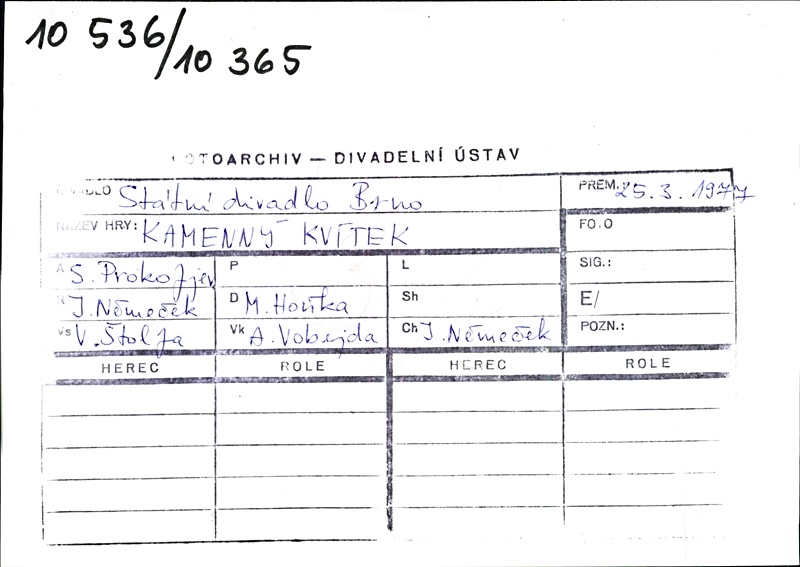 10 536/10 365
FOTOARCHIV — DIVADELNÍ ÚSTAV
DIVADLO Státní divadlo Brno PREM. 25. 3. 1977
NÁZEV HRY: KAMENNÝ KVÍTEK FOTO
A S. Prokofjev P L SIG.:
R J. Němeček D M. Houska Sh E/
VS V. Štolfa Vk A. Vobejda Ch J. Němeček POZN.:
HEREC ROLE HEREC ROLE